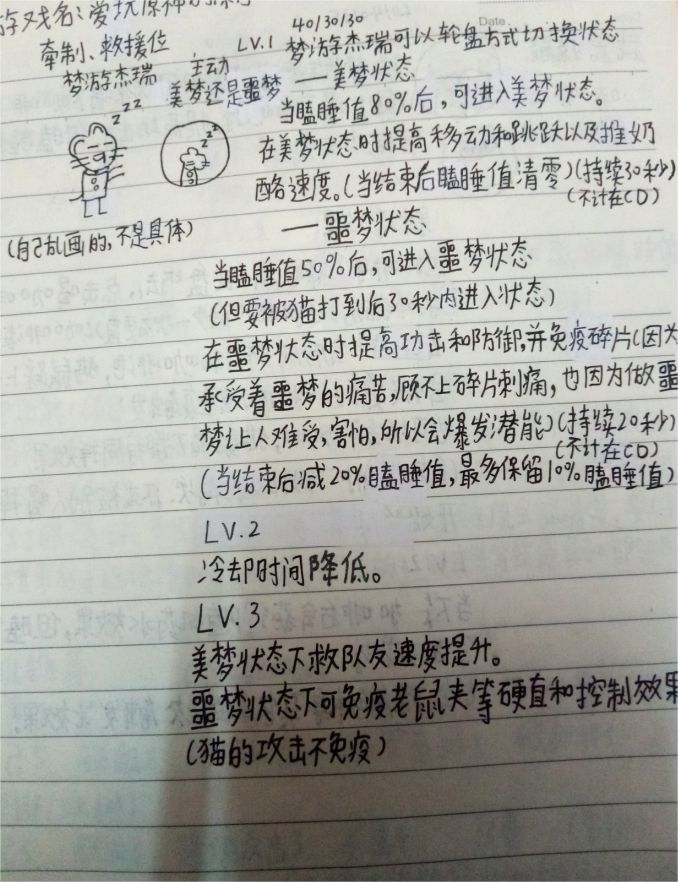 游戏名:爱玩原神的
牵制、救援位
梦游杰瑞
zzz
主动
美梦还是噩梦
zzz
(自己乱画的,不是具体)
Date.
LV.1
40/30/30
梦游杰瑞可以轮盘方式切换状态
——美梦状态
当瞌睡值80%后,可进入美梦状态。
在美梦状态时提高移动和跳跃以及推奶
酪速度。(当结束后瞌睡值清零)(持续30秒)
(不计在CD)
——噩梦状态
当瞌睡值50%后,可进入噩梦状态
(但要被猫打到后30秒内进入状态)
在噩梦状态时提高功击和防御,并免疫碎片(因为
承受着噩梦的痛苦,顾不上碎片刺痛,也因为做噩
梦让人难受,害怕,所以会爆发潜能)(持续20秒)
(不计在CD)
(当结束后减20%瞌睡值,最多保留10%瞌睡值)
LV.2
冷却时间降低。
LV.3
美梦状态下救队友速度提升。
噩梦状态下可免疫老鼠夹等硬直和控制效果
(猫的攻击不免疫)